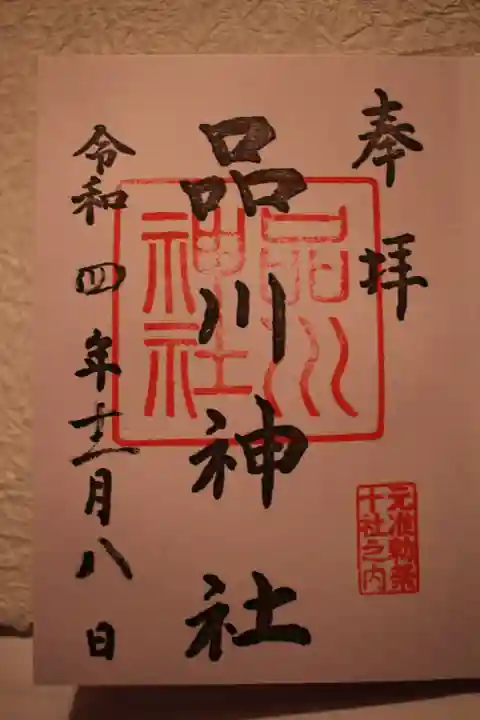 奉拝
品川神社
令和四年十二月八日
品川
神社
元准勅祭
十社之内